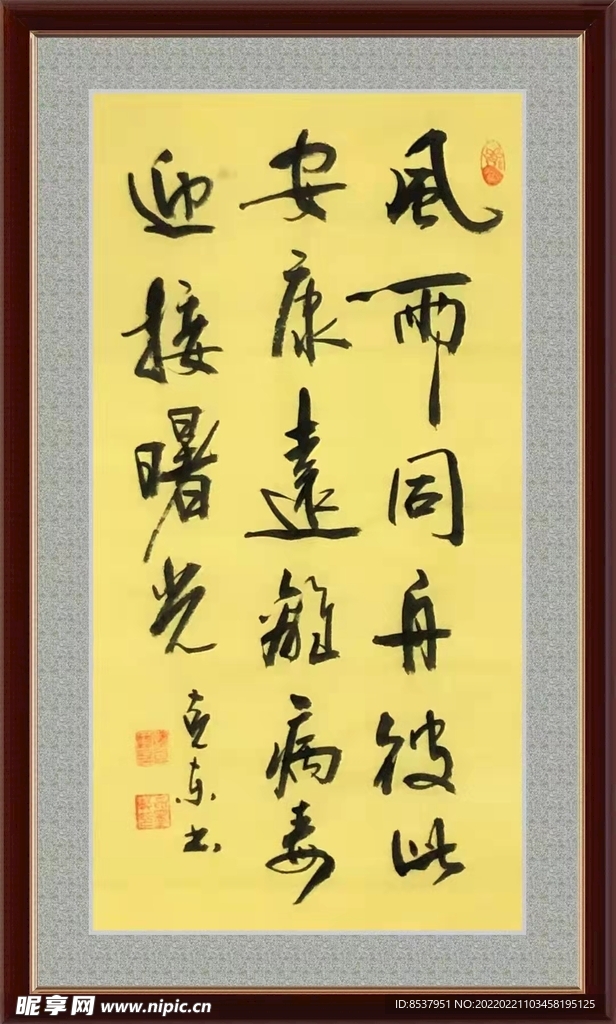 風雨同舟彼此
安康遠離病毒
迎接曙光
克东书
昵享网 www.nipic.cn
ID:8537951 NO:20220221103458195125